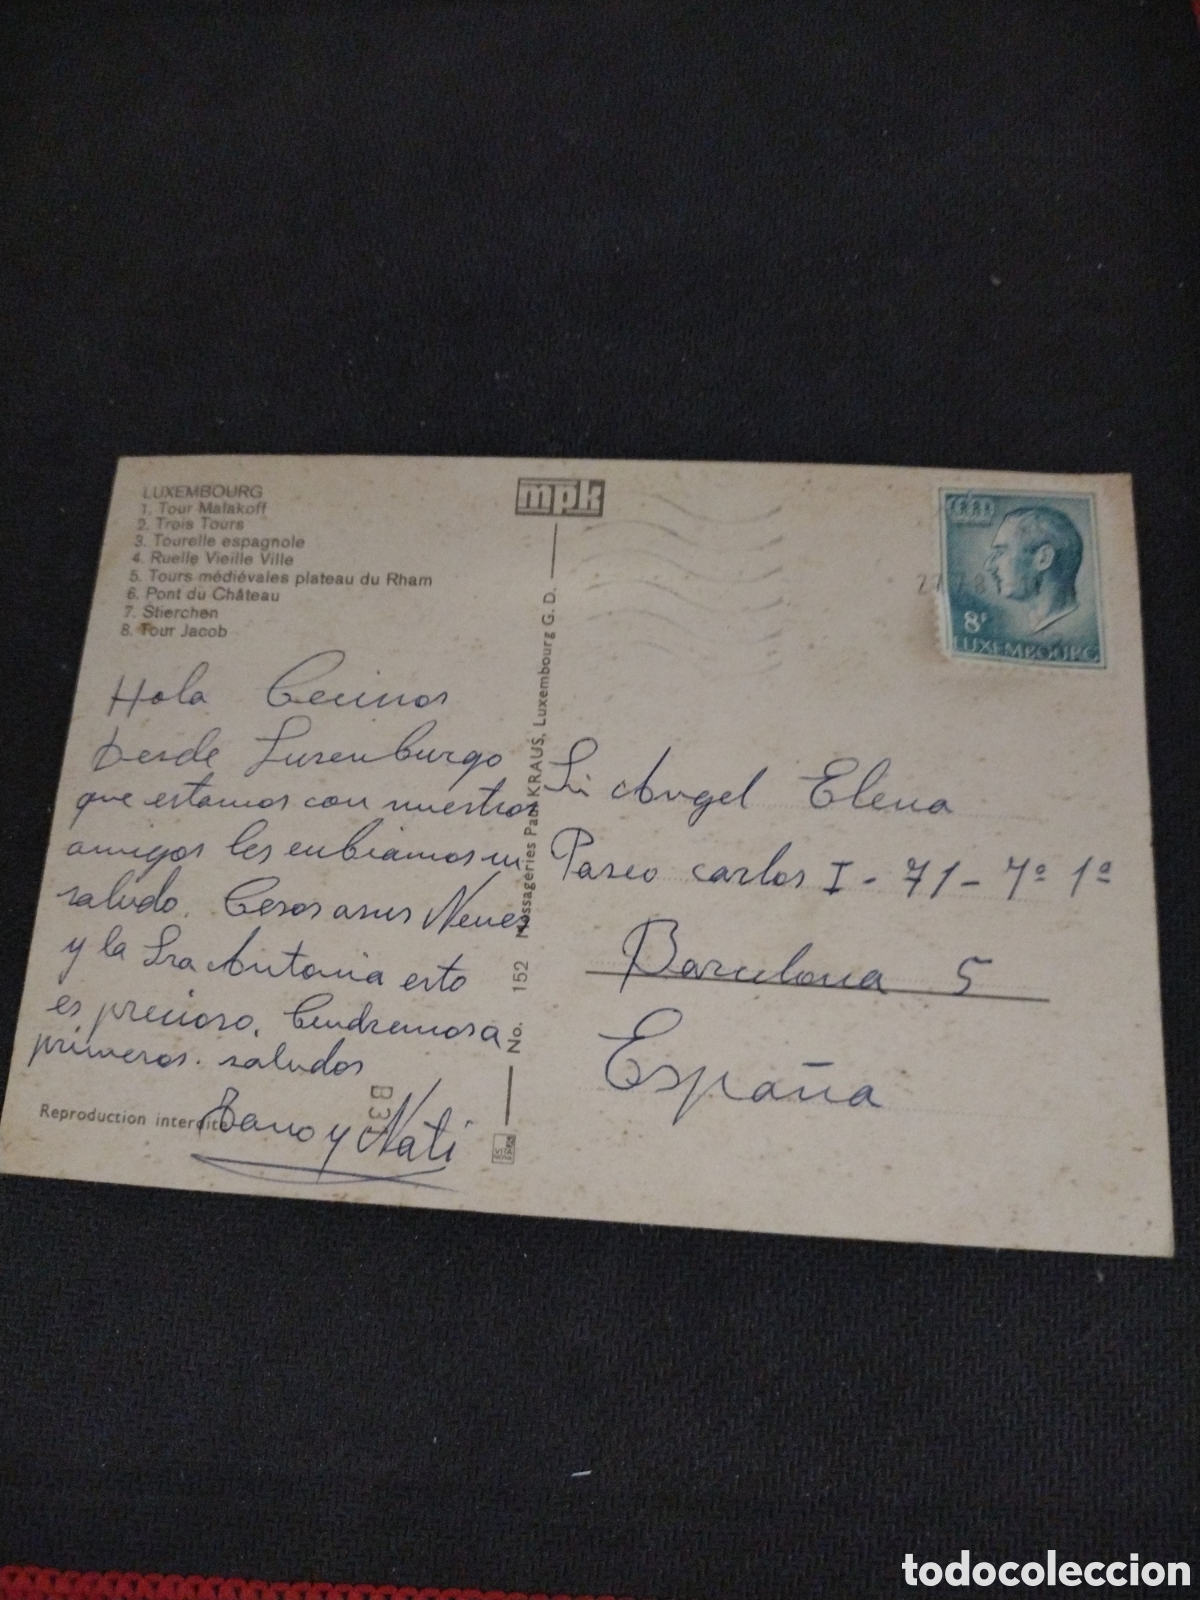 LUXEMBOURG
1. Tour Malakoff
2. Trois Tours
3. Tourelle espagnole
4. Ruelle Vieille Ville
5. Tours médiévales plateau du Rham
6. Pont du Château
7. Stierchen
8. Tour Jacob
Hola Becinos
Desde Luxenburgo
que estamos con nuestros
amigos les enbiamos un
saludo. Besos a sus Nenes
y la Sra Antonia esto
es precioso. Bendremos a
primeros. saludos
y Nati
Reproduction interdite
B3
mpk
No. 152 Messageries Paul KRAUS, Luxembourg G. D.
8F
LUXEMBOURG
Angel Elena
Paseo carlos I - 71 - 7º 1ª
Barcelona 5
España
todocoleccion